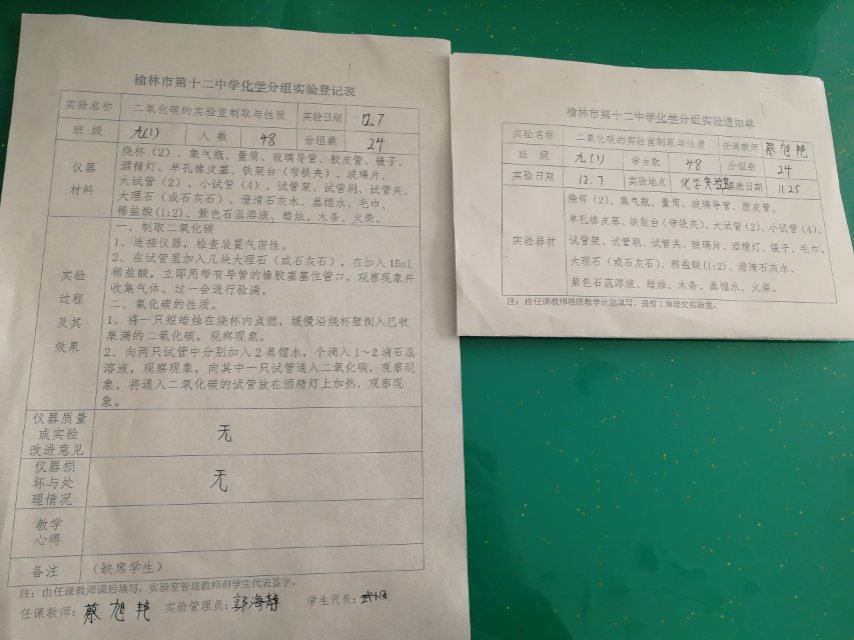 榆林市第十二中学化学分组实验登记表
实验名称 二氧化碳的实验室制取与性质 实验日期 12.7
班级 九(1) 人数 48 分组数 24
仪器材料
烧杯（2）、集气瓶、量筒、玻璃导管、胶皮管、镊子、
酒精灯、单孔橡皮塞、铁架台（带铁夹）、玻璃片、
大试管（2）、小试管（4）、试管架、试管刷、试管夹、
大理石（或石灰石）、澄清石灰水、蒸馏水、毛巾、
稀盐酸(1:2)、紫色石蕊溶液、蜡烛、木条、火柴。
实验过程及其效果
一、制取二氧化碳
1、连接仪器，检查装置气密性。
2、在试管里加入几块大理石（或石灰石），在加入15ml
稀盐酸，立即用带有导管的橡胶塞塞住管口，观察现象并
收集气体。过一会进行验满。
二、氧化碳的性质。
1、将一只短蜡烛在烧杯内点燃，缓慢沿烧杯壁倒入已收
集满的二氧化碳，观察现象。
2、向两只试管中分别加入2蒸馏水，个滴入1～2滴石蕊
溶液，观察现象，向其中一只试管通入二氧化碳，观察现
象。将通入二氧化碳的试管放在酒精灯上加热，观察现
象。
仪器质量或实验改进意见 无
仪器损坏与处理情况 无
教学心得
备注 （缺席学生）
注：由任课教师课后填写，实验室管理教师和学生代表签字。
任课教师：蔡旭艳 实验管理员：郭海静 学生代表：
榆林市第十二中学化学分组实验通知单
实验名称 二氧化碳的实验室制取与性质 任课教师 蔡旭艳
班级 九(1) 学生数 48 分组数 24
实验日期 12.7 实验地点 化学实验室 填表日期 11.25
实验器材
烧杯（2）、集气瓶、量筒、玻璃导管、胶皮管、
单孔橡皮塞、铁架台（带铁夹）、大试管(2)、小试管(4)、
试管架、试管刷、试管夹、玻璃片、酒精灯、镊子、毛巾、
大理石（或石灰石）、稀盐酸(1:2)、澄清石灰水、
紫色石蕊溶液、蜡烛、木条、蒸馏水、火柴。
注：由任课教师根据教学计划填写，提前1周送交实验室。